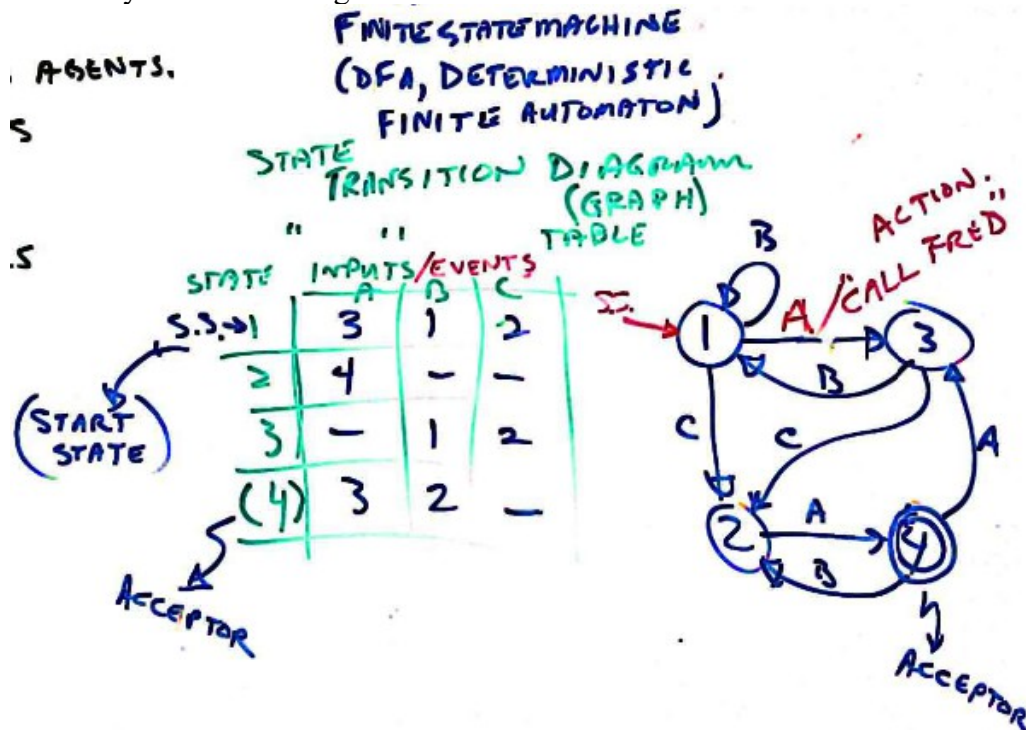 FINITE STATE MACHINE
. AGENTS.
(DFA, DETERMINISTIC
S
FINITE AUTOMATON)
STATE
TRANSITION DIAGRAM
(GRAPH)
" " TABLE
.S
STATE INPUTS/EVENTS
A B C
S.S.→1 3 1 2
2 4 - -
3 - 1 2
(4) 3 2 -
(START
STATE)
ACCEPTOR
ACTION.
B
A/"CALL FRED"
S.S.
1
3
B
C
C
A
2
A
4
B
ACCEPTOR